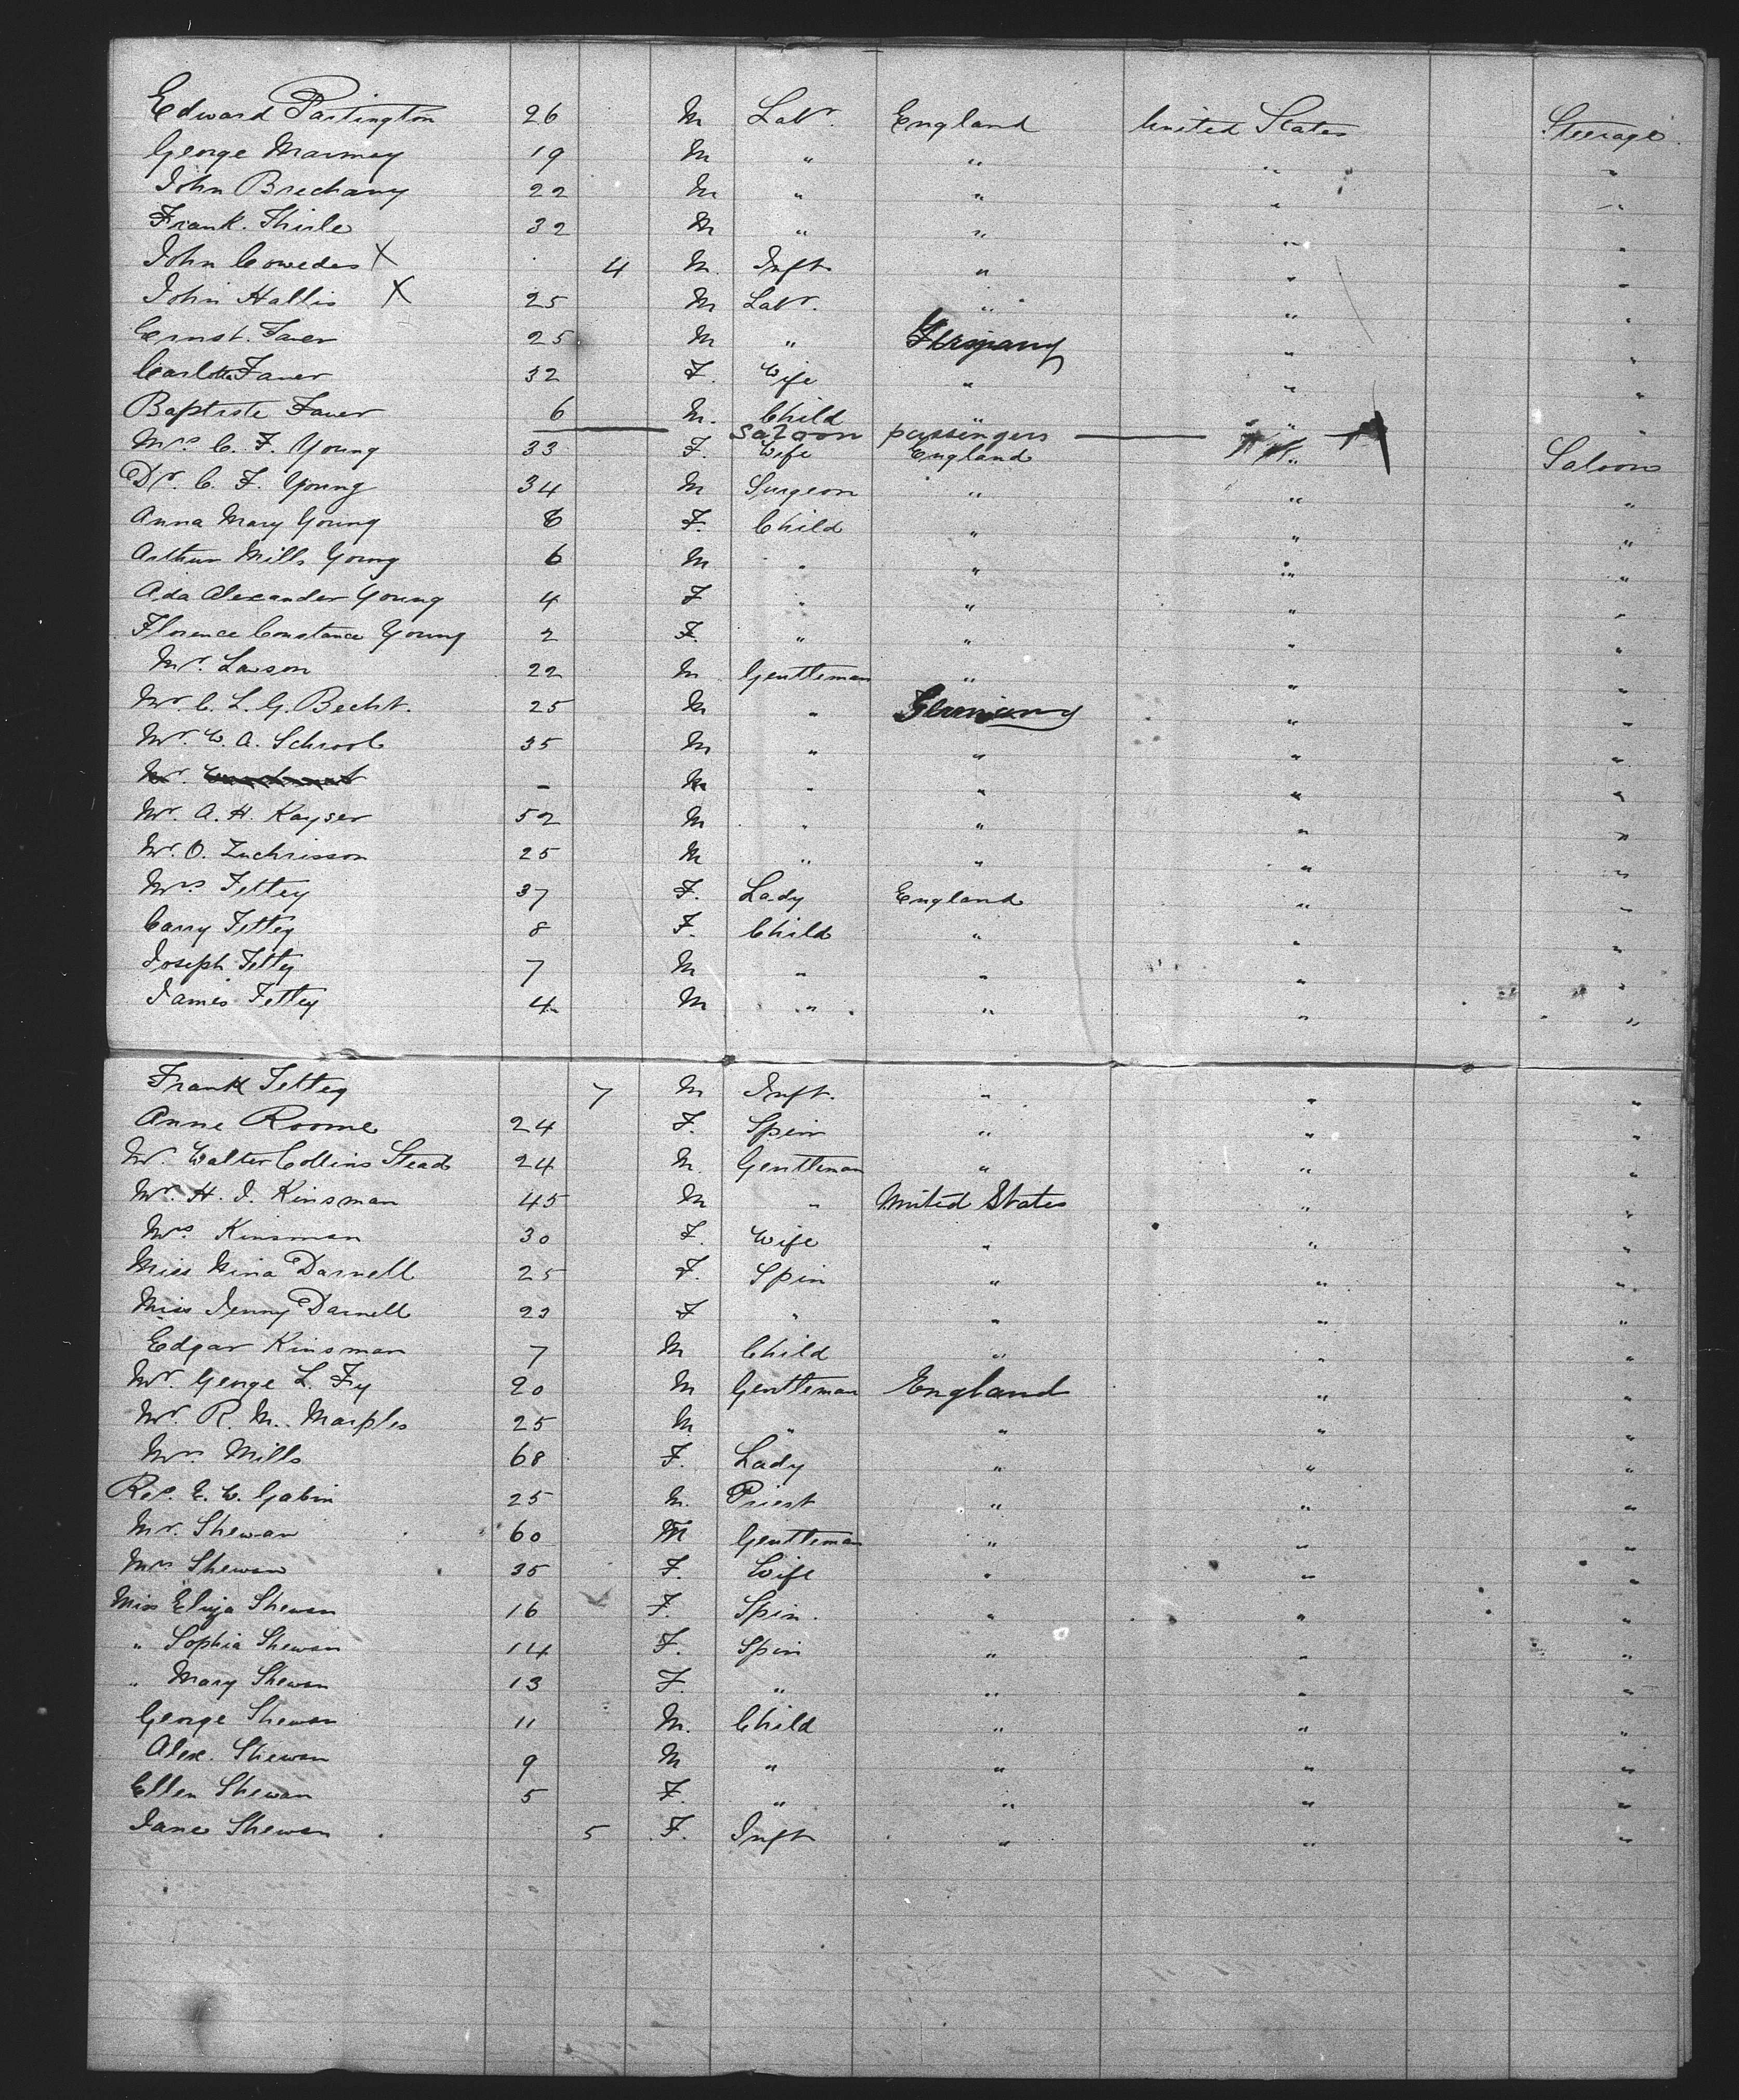 Edward Partington 26 M Labr. England United States Steerage.
George Marmay 19 M " " " "
John Brechany 22 M " " " "
Frank. Thirle 32 M " " " "
John Cowedes X 4 M. Inft " " "
John Hallis X 25 M Labr. " " "
Ernst. Faver 25 M " Germany " "
Carlotta Faver 32 F. Wife " " "
Baptiste Faver 6 M. Child " " "
Saloon passengers
Mrs C. F. Young 33 F. Wife England " Saloon
Dr. C. F. Young 34 M Surgeon " " "
Anna Mary Young 8 F. Child " " "
Arthur Mills Young 6 M " " " "
Ada Alexander Young 4 F " " " "
Florence Constance Young 2 F. " " " "
Mr. Lawson 22 M Gentleman " " "
Mr. C. L. G. Becht. 25 M " Germany " "
Mr. W. A. Schroob 35 M " " " "
Mr. - M " " " "
Mr. A. H. Kayser 52 M " " " "
Mr. O. Zuchrisson 25 M " " " "
Mrs Tettey 37 F. Lady England " "
Carry Tettey 8 F. Child " " "
Joseph Tettey 7 M " " " "
James Tettey 4 M " " " "
Frank Tettey 7 M Inft. " " "
Anne Roome 24 F. Spin " " "
Mr. Walter Collins Stead 24 M. Gentleman " " "
Mr. H. J. Kinsman 45 M " United States " "
Mrs Kinsman 30 F. Wife " " "
Miss Nina Darnell 25 F. Spin " " "
Miss Jenny Darnell 23 F " " " "
Edgar Kinsman 7 M Child " " "
Mr. George L. Fry 20 M Gentleman England " "
Mr. R. M. Marples 25 M " " " "
Mrs Mills 68 F. Lady " " "
Rev. E. W. Gabin 25 M. Priest " " "
Mr. Shewan 60 M Gentleman " " "
Mrs Shewan 35 F. Wife " " "
Miss Eliza Shewan 16 F. Spin. " " "
" Sophia Shewan 14 F. Spin " " "
" Mary Shewan 13 F. " " " "
George Shewan 11 M. Child " " "
Alex. Shewan 9 M " " " "
Ellen Shewan 5 F. " " " "
Jane Shewan 5 F. Inft " " "